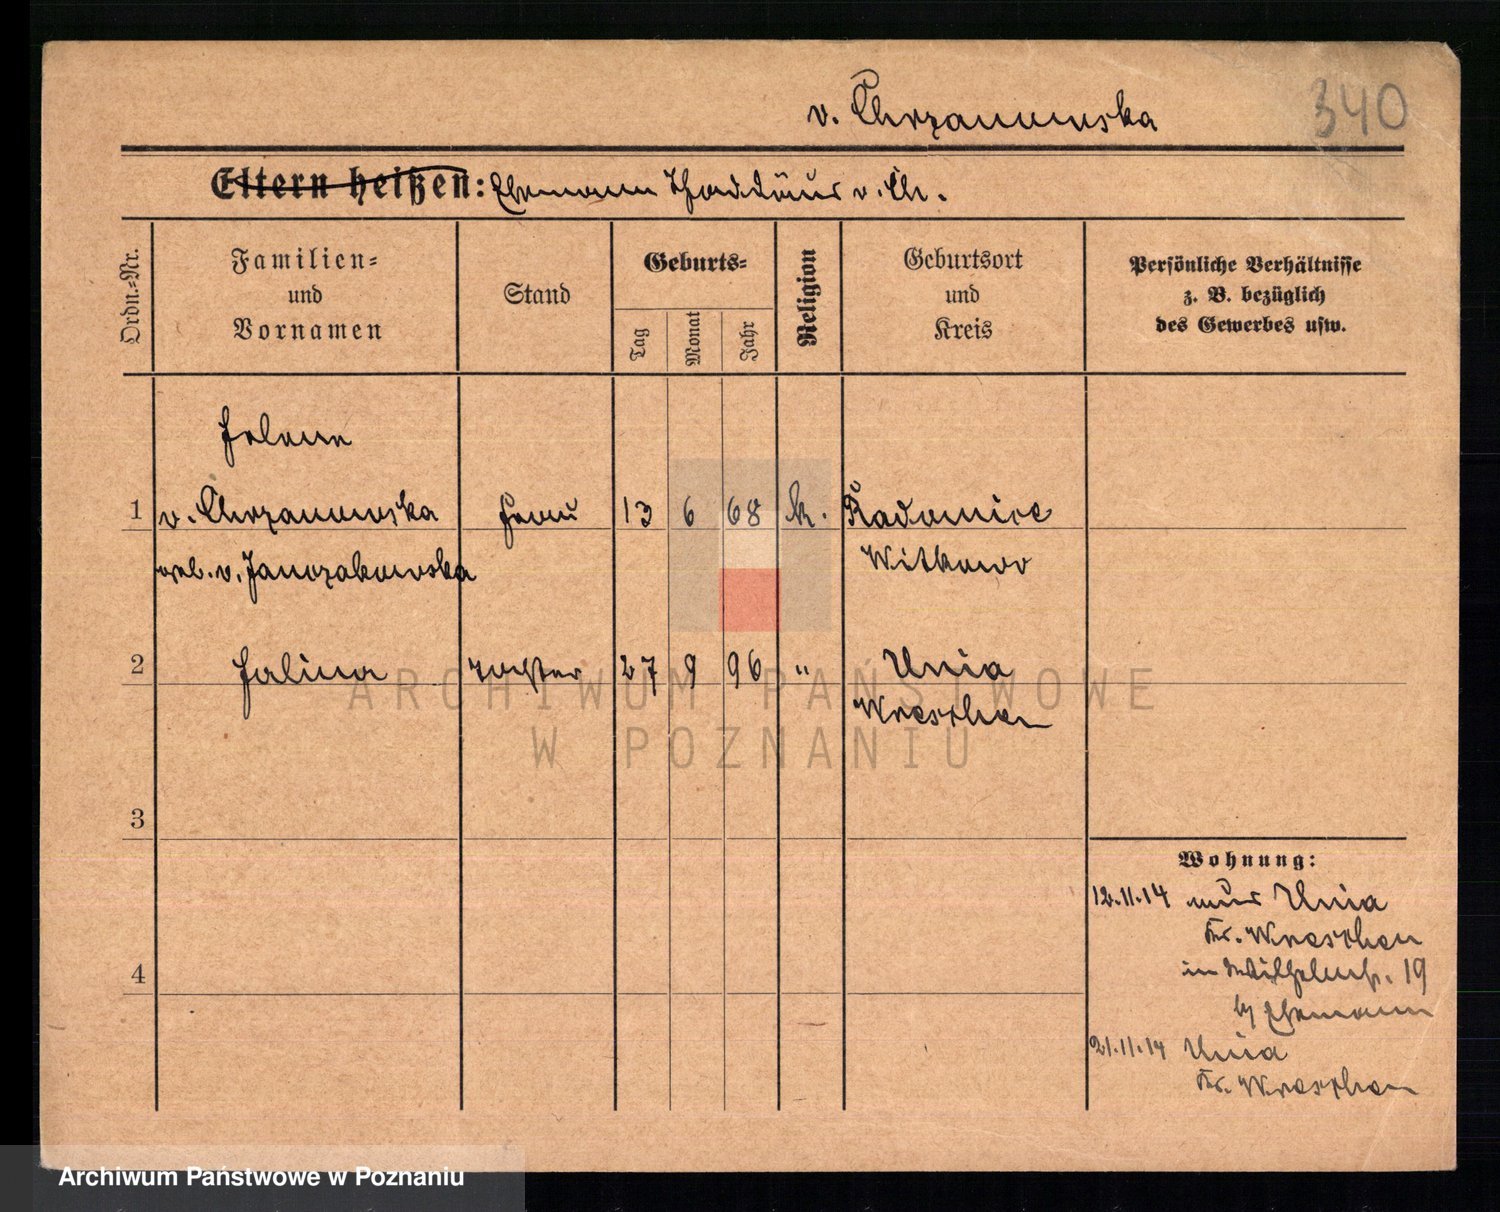 v. Chrzanowska
340
Eltern heißen: Ehemann Thaddäus v. Ch.
Ordn.-Nr.
Familien-
und
Vornamen
Stand
Geburts-
Tag
Monat
Jahr
Religion
Geburtsort
und
Kreis
Persönliche Verhältnisse
z. B. bezüglich
des Gewerbes usw.
Helene
1 v. Chrzanowska Frau 13 6 68 k. Radomice
geb. v. Janczakowska Witkowo
2 Halina Tochter 27 9 96 " Unia
Wreschen
3
4
Wohnung:
12.11.14 aus Unia
Kr. Wreschen
in Wilhelmstr. 19
by Ehemann
21.11.14 Unia
Kr. Wreschen
ARCHIWUM PAŃSTWOWE
W POZNANIU
Archiwum Państwowe w Poznaniu